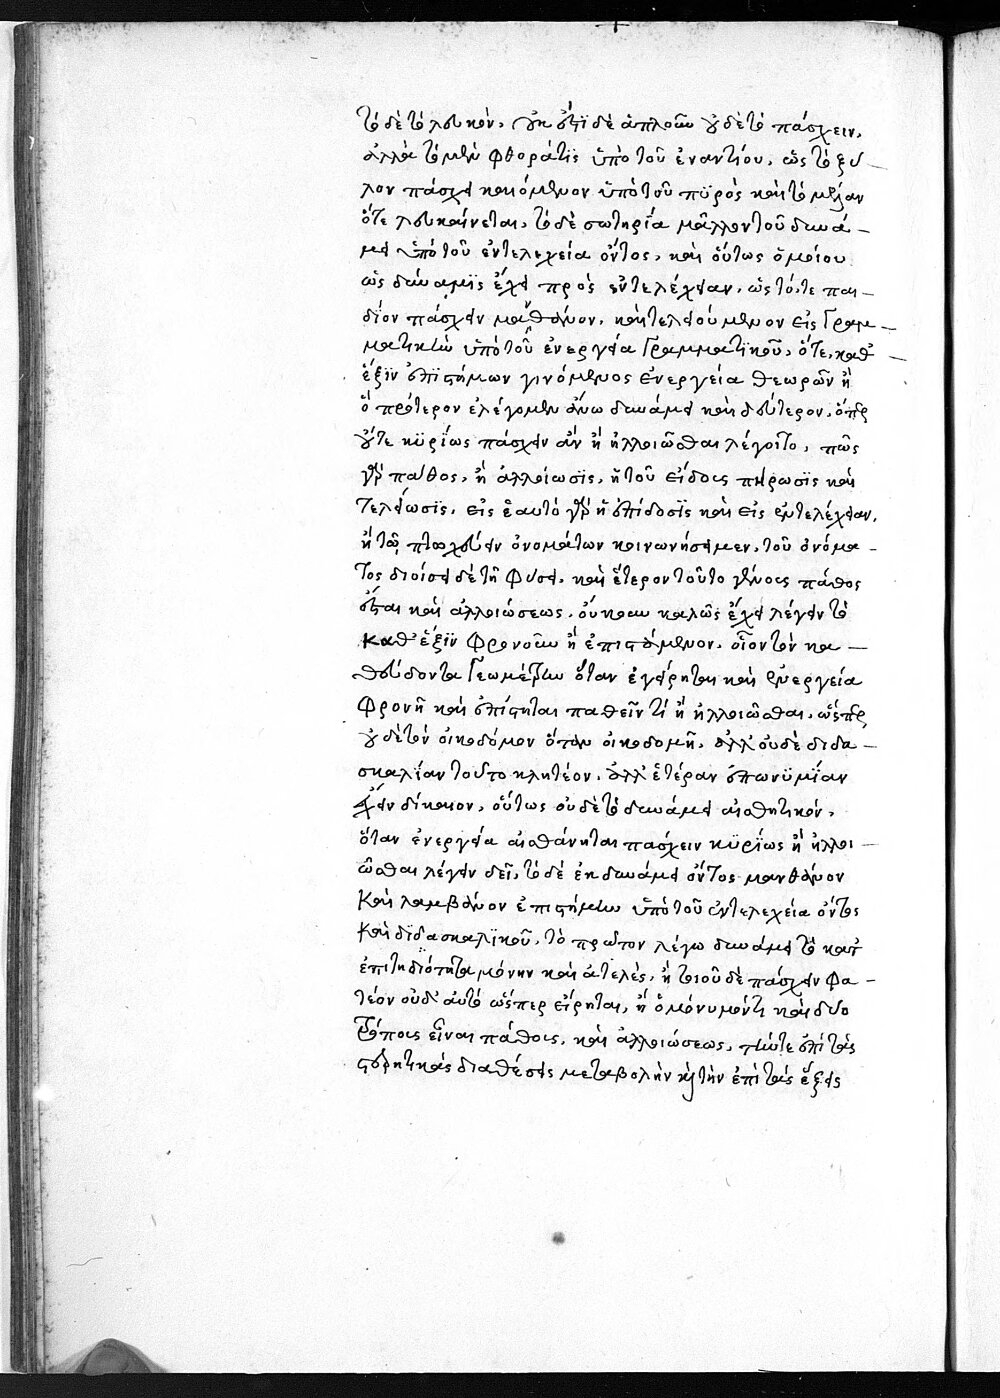 τὸ δὲ τὸ λευκόν. οὐκ ἔστι δὲ ἁπλοῦν οὐδὲ τὸ πάσχειν,
ἀλλὰ τὸ μὲν φθορά τις ὑπὸ τοῦ ἐναντίου, ὡς τὸ ξύ-
λον πάσχει καιόμενον ὑπὸ τοῦ πυρὸς καὶ τὸ μέλαν
ὅτε λευκαίνεται, τὸ δὲ σωτηρία μᾶλλον τοῦ δυνά-
μει ὑπὸ τοῦ ἐντελεχεία ὄντος, καὶ οὕτως ὁμοίου
ὡς δύναμις ἔχει πρὸς ἐντελέχειαν, ὡς τό,τε παι-
δίον πάσχειν μανθάνον, καὶ τελειούμενον εἰς γραμ-
ματικὴν ὑπὸ τοῦ ἐνεργεία γραμματικοῦ, ὅτε, καθ-
έξιν ἐπιστήμων γινόμενος ἐνεργεία θεωρῶν ἢ
ὃ πρότερον ἐλέγομεν ἄνω δυνάμει καὶ δεύτερον, ὅπερ
οὔτε κυρίως πάσχειν ἂν ἢ ἠλλοιῶσθαι λέγοιτο, πῶς
γὰρ πάθος, ἢ ἀλλοίωσις, ἡ τοῦ εἴδους πλήρωσις καὶ
τελείωσις, εἰς ἑαυτὸ γὰρ ἡ ἐπίδοσις καὶ εἰς ἐντελέχειαν,
ἢ τῶ πτωχεύειν ὀνομάτων κοινωνήσαμεν, τοῦ ὀνόμα-
τος διοίσει δὲ τῇ φύσει, καὶ ἕτερον τοῦτο γένους πάθος
ἔσται καὶ ἀλλοιώσεως, οὔκουν καλῶς ἔχει λέγειν τὸ
καθ' ἕξιν φρονοῦν ἢ ἐπιστάμενον, οἷον τὸν κα-
θεύδοντα γεωμέτρην ὅταν ἐγείρηται καὶ ἐνεργεία
φρονῇ καὶ ἐπίστηται παθεῖν τι ἢ ἠλλοιῶσθαι, ὥσπερ
οὐδὲ τὸν οἰκοδόμον ὅταν οἰκοδομῇ, ἀλλ' οὐδὲ διδα-
σκαλίαν τοῦτο κλητέον, ἀλλ' ἑτέραν ἐπωνυμίαν
ἔχειν δίκαιον, οὕτως οὐδὲ τὸ δυνάμει αἰσθητικόν,
ὅταν ἐνεργεία αἰσθάνηται πάσχειν κυρίως ἢ ἠλλοι-
ῶσθαι λέγειν δεῖ, τὸ δὲ ἐκ δυνάμει ὄντος μανθάνον
καὶ λαμβάνον ἐπιστήμην ὑπὸ τοῦ ἐντελεχεία ὄντος
καὶ διδασκαλικοῦ, τὸ πρῶτον λέγω δυνάμει τὸ κατ'
ἐπιτηδιότητα μόνην καὶ ἀτελές, ἤτοι οὐδὲ πάσχειν φα-
τέον οὐδ' αὐτὸ ὥσπερ εἴρηται, ἢ ὁμόνυμόν τι καὶ δύο
τρόπους εἶναι πάθους, καὶ ἀλλοιώσεως, τήν τε ἐπὶ τὰς
στερητικὰς διαθέσεις μεταβολὴν καὶ τὴν ἐπὶ τὰς ἕξεις